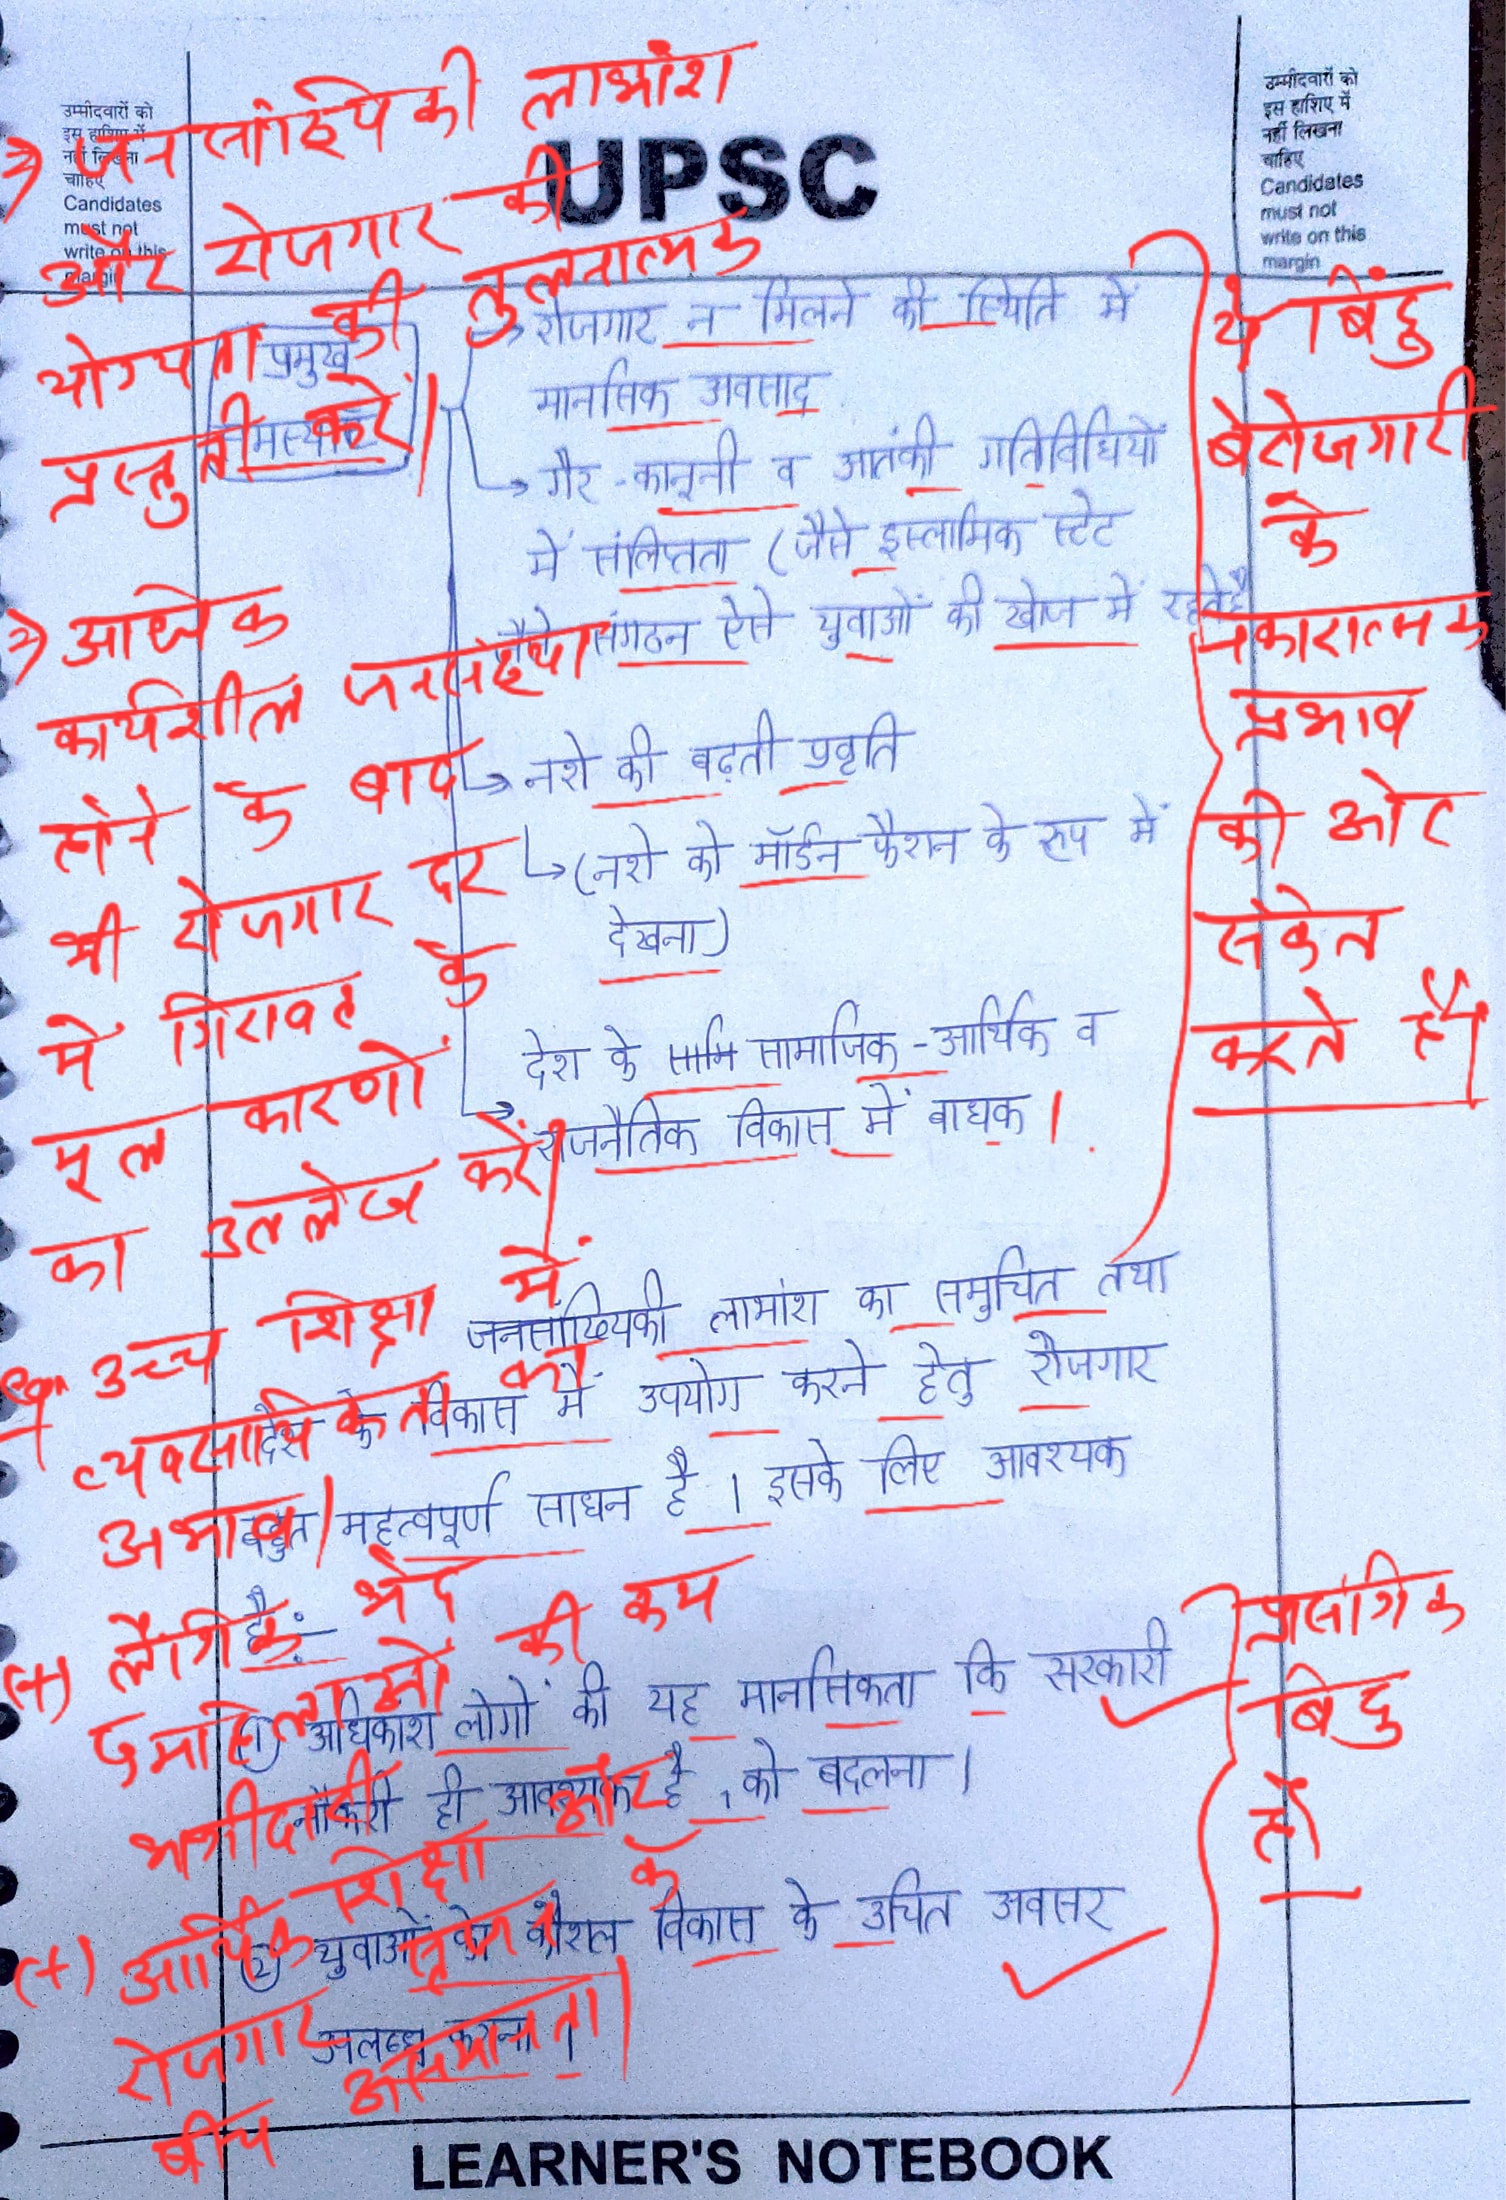 उम्मीदवारों को
इस हाशिए में
नहीं लिखना
चाहिए
Candidates
must not
write on this
margin
UPSC
उम्मीदवारों को
इस हाशिए में
नहीं लिखना
चाहिए
Candidates
must not
write on this
margin
→ जनसांख्यिकी लाभांश
और रोजगार की
योग्यता की तुलनात्मक
प्रस्तुती करें।
→ अधिक
कार्यशील जनसंख्या
होने के बाद
भी रोजगार दर
में गिरावट के
मूल कारणों
का उल्लेख करें।
उच्च शिक्षा में
व्यवसायिकता का
अभाव।
(+) लैंगिक भेद
महिलाओं की कम
भागीदारी
(+) आर्थिक शिक्षा और
रोजगार के
बीच असमानता।
प्रमुख
समस्याएँ
→ रोजगार न मिलने की स्थिति में
मानसिक अवसाद
→ गैर-कानूनी व आतंकी गतिविधियों
में संलिप्तता (जैसे इस्लामिक स्टेट
जैसे संगठन ऐसे युवाओं की खोज में रहते है
→ नशे की बढ़ती प्रवृति
↳ (नशे को मॉर्डन फैशन के रूप में
देखना)
→ देश के सामाजिक-आर्थिक व
राजनैतिक विकास में बाधक।
जनसांख्यिकी लाभांश का समुचित तथा
देश के विकास में उपयोग करने हेतु रोजगार
बहुत महत्वपूर्ण साधन है। इसके लिए आवश्यक
है:-
(1) अधिकांश लोगों की यह मानसिकता कि सरकारी
नौकरी ही आवश्यक है, को बदलना।
(2) युवाओं को कौशल विकास के उचित अवसर
उपलब्ध कराना।
ये बिंदु
बेरोजगारी
के
नकारात्मक
प्रभाव
की ओर
संकेत
करते हैं।
प्रासंगिक
बिंदु
है।
LEARNER'S NOTEBOOK